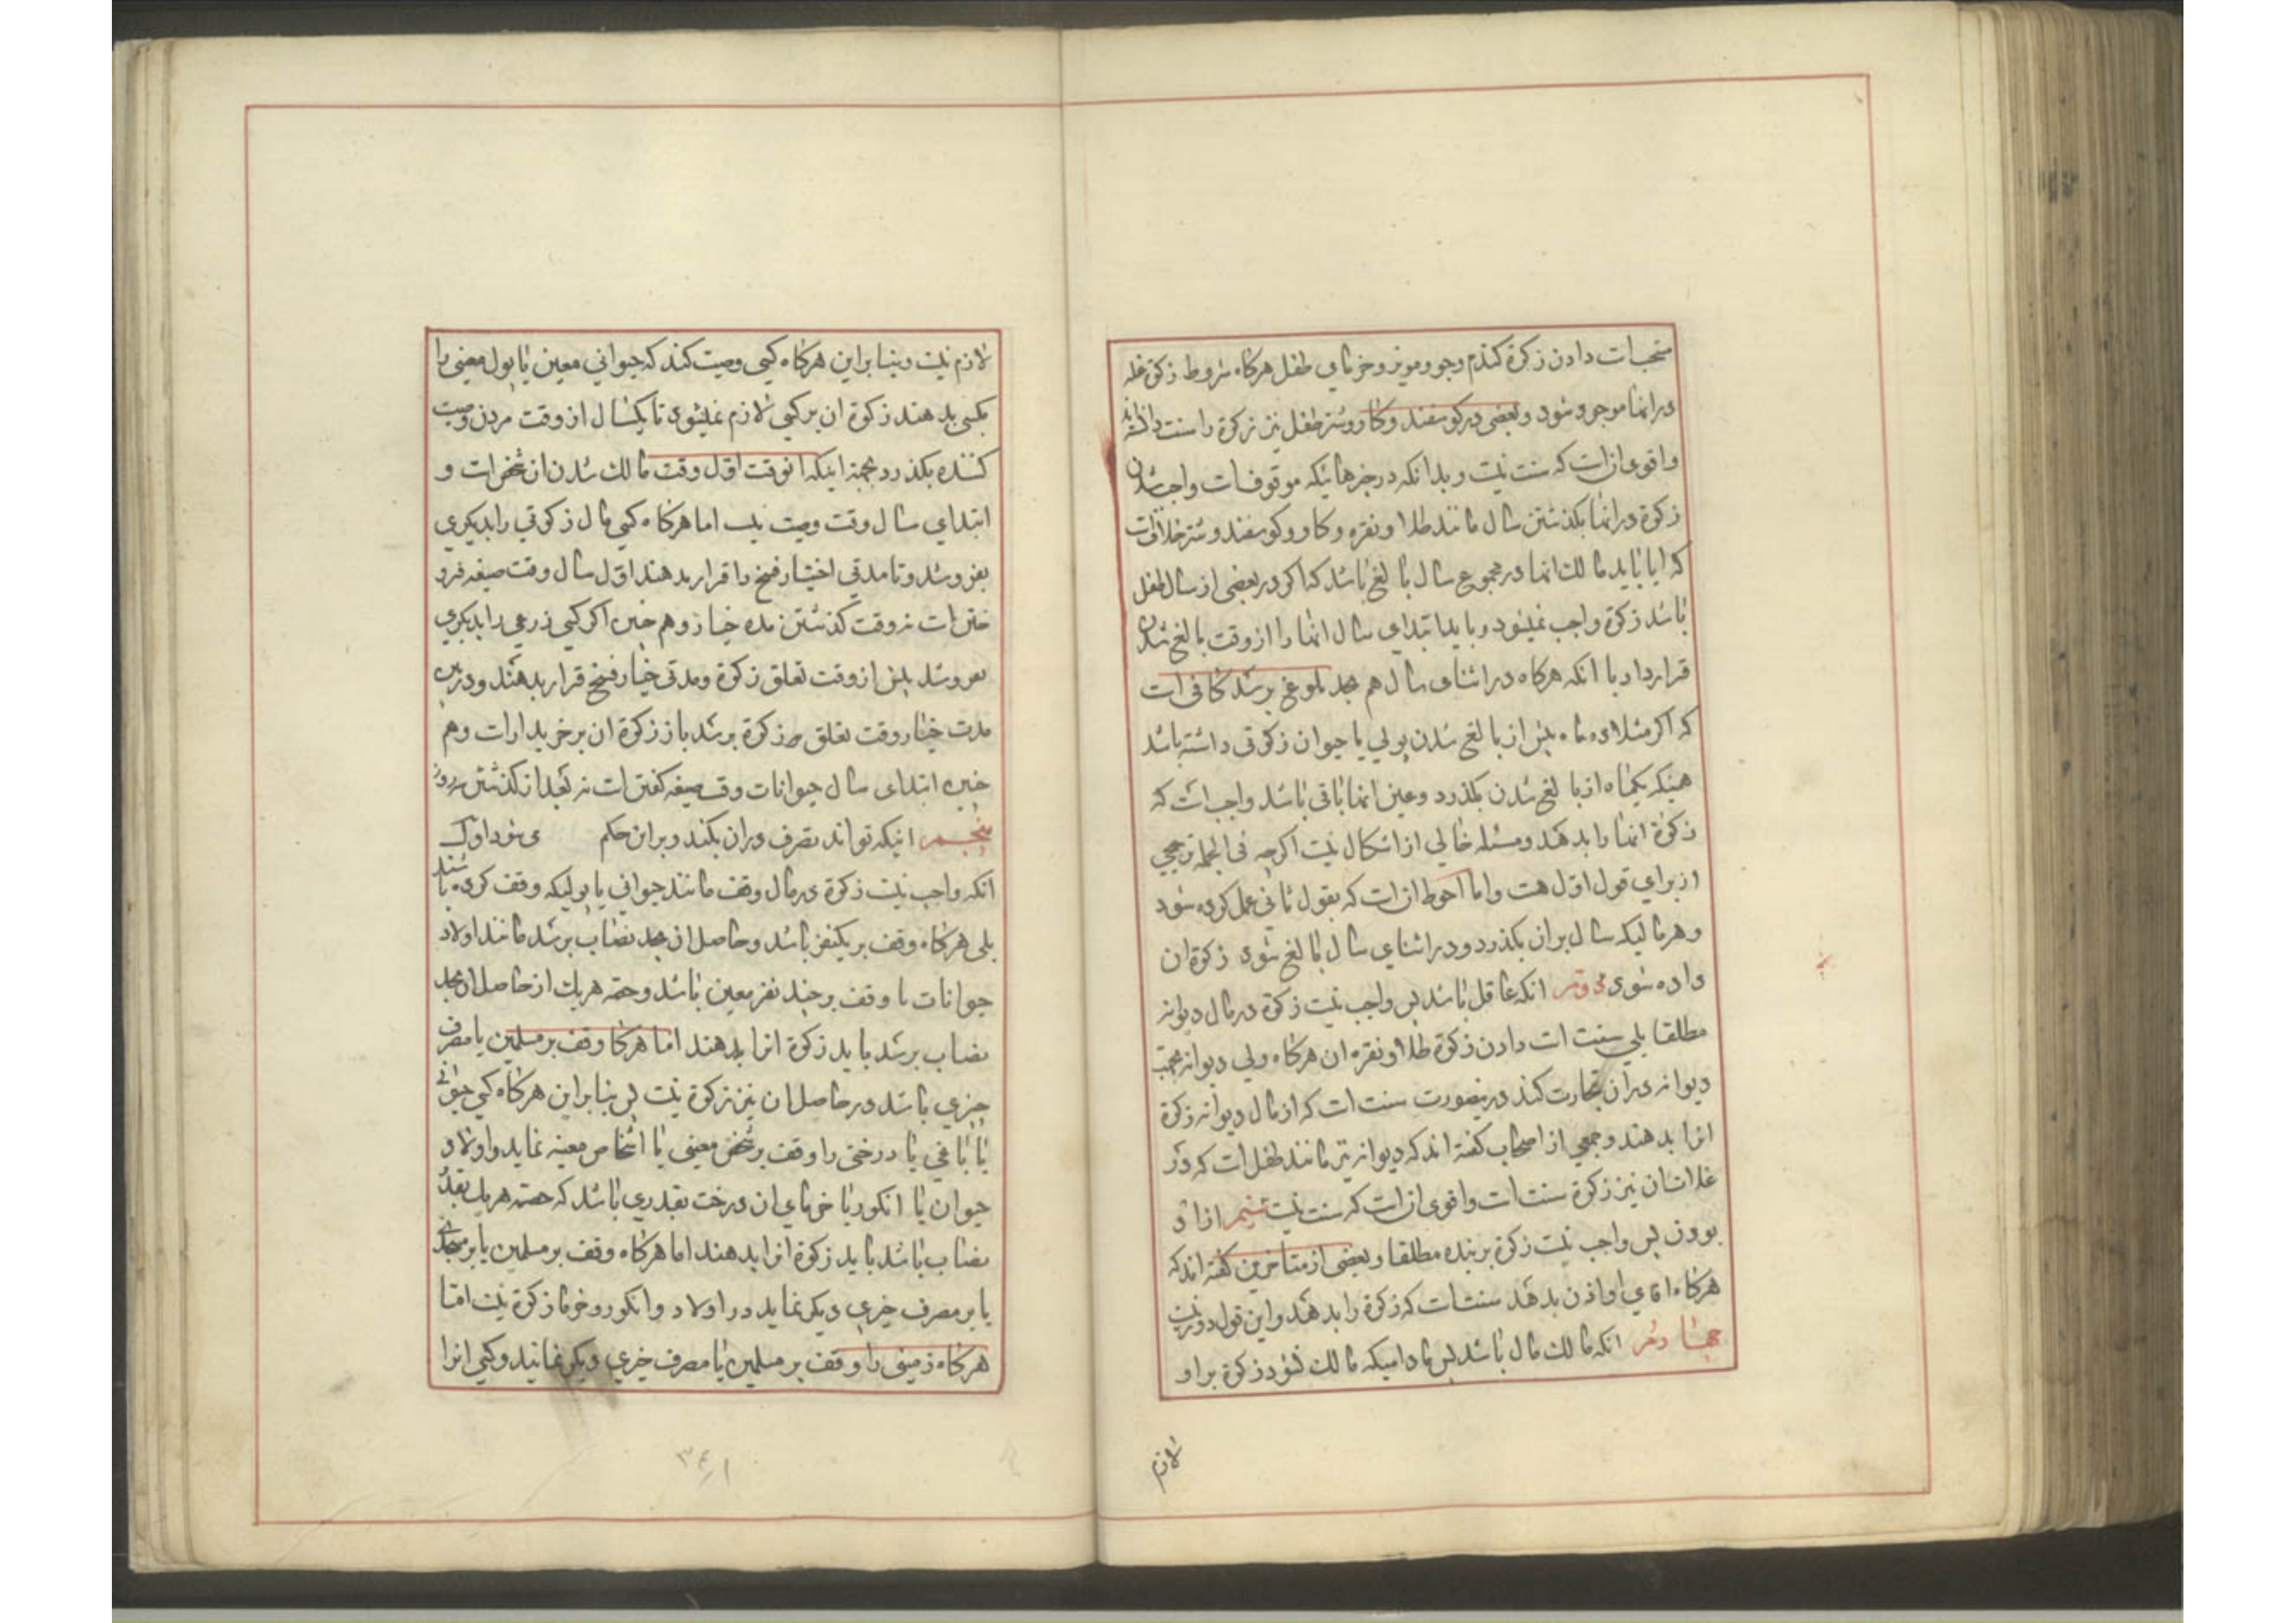 منحبات دادن زكوة كندم وجو ومويز وخرماى طفل هركاه شروط زكوة غله
درانها موجود شود وبعضى در كوسفند وكاو وشتر طفل نيز زكوة را سنت دانسته اند
واقوى ان است كه سنت نيست وبدانكه در چيزهائيكه موقوفست واجب شدن
زكوة درانها بكذشتن سال مانند طلا ونقره وكاو وكوسفند وشتر خلافست
كه ايا بايد مالك انها در مجموع سال بالغ باشد كه اكر در بعضى از سال طفل
باشد زكوة واجب نميشود وبايد ابتداى سال انها را از وقت بالغ شدن
قرار داد يا انكه هركاه در اثناى سال هم بحد بلوغ برسد كافى است
كه اكر مثلا ده ماه پيش از بالغ شدن پولى يا حيوان زكوتى داشته باشد
همينكه يكماه از بالغ شدن بكذرد وعين انها باقى باشد واجب است كه
زكوة انها را بدهد ومسئله خالى از اشكال نيست اكرچه فى الجمله ترجيحى
از براى قول اول هست واما احوط ان است كه بقول ثانى عمل كرده شود
وهر ماليكه سال بران بكذرد ودر اثناى سال بالغ شود زكوة ان
داده شود دوم انكه عاقل باشد پس واجب نيست زكوة در مال ديوانه
مطلقا بلى سنت است دادن زكوة طلا ونقره ان هركاه ولى ديوانه بجهت
ديوانه دران تجارت كند درينصورت سنت است كه از مال ديوانه زكوة
انرا بدهند وجمعى از اصحاب كفته اند كه ديوانه نيز مانند طفل است كه در
غلات ان نيز زكوة سنت است واقوى ان است كه سنت نيست سيم ازاد
بودن پس واجب نيست زكوة بر بنده مطلقا وبعضى از متاخرين كفته اند كه
هركاه اقاى او اذن بدهد سنت است كه زكوة را بدهد واين قول دور نيست
چهارم انكه مالك مال باشد پس ماداميكه مالك نشود زكوة بر او
لازم
لازم نيست وبنا براين هركاه كسى وصيت كند كه حيوانى معين يا پول معينى را
بكسى بدهند زكوة ان بر كسى لازم نميشود تا يكسال از وقت مردن وصيت
كننده بكذرد بجهة اينكه انوقت اول وقت مالك شدن ان شخص است و
ابتداى سال وقت وصيت نيست اما هركاه كسى مال زكوتى را بديكرى
بفروشد وتا مدتى اختيار فسخ را قرار بدهند اول سال وقت صيغه فروختن
است نه وقت كذشتن مده خيار وهم چنين اكر كسى زرعى را بديكرى
بفروشد پيش از وقت تعلق زكوة ومدتى خيار فسخ قرار بدهند ودرين
مدت خيار وقت تعلق زكوة برسد باز زكوة ان بر خريدار است وهم
چنين ابتداى سال حيوانات وقت صيغه كفتن است نه بعد از كذشتن سه روز
پنجم اينكه تواند تصرف دران بكند وبراين حكم مى شود اول
انكه واجب نيست زكوة در مال وقف مانند حيوانى يا پوليكه وقف كرده باشند
بلى هركاه وقف بر يكنفر باشد وحاصل ان بحد نصاب برسد مانند اولاد
حيوانات يا وقف بر چند نفر معين باشد وحصه هريك از حاصل ان بحد
نصاب برسد بايد زكوة انرا بدهند اما هركاه وقف بر مسلمين يا مصرف
چيزى باشد در حاصل ان نيز زكوة نيست پس بنا براين هركاه كسى حيوانى
يا باغى يا درختى را وقف بر شخص معينى يا اشخاص معينه نمايد واولاد
حيوان يا انكور يا خرماى ان درخت بقدرى باشد كه حصه هريك بقدر
نصاب باشد بايد زكوة انرا بدهند اما هركاه وقف بر مسلمين يا بر مسجدى
يا بر مصرف خيرى ديكر نمايد در اولاد وانكور وخرما زكوة نيست اما
هركاه زمينى را وقف بر مسلمين يا مصرف خيرى ديكر نمايند وكسى انرا
۳۴۱